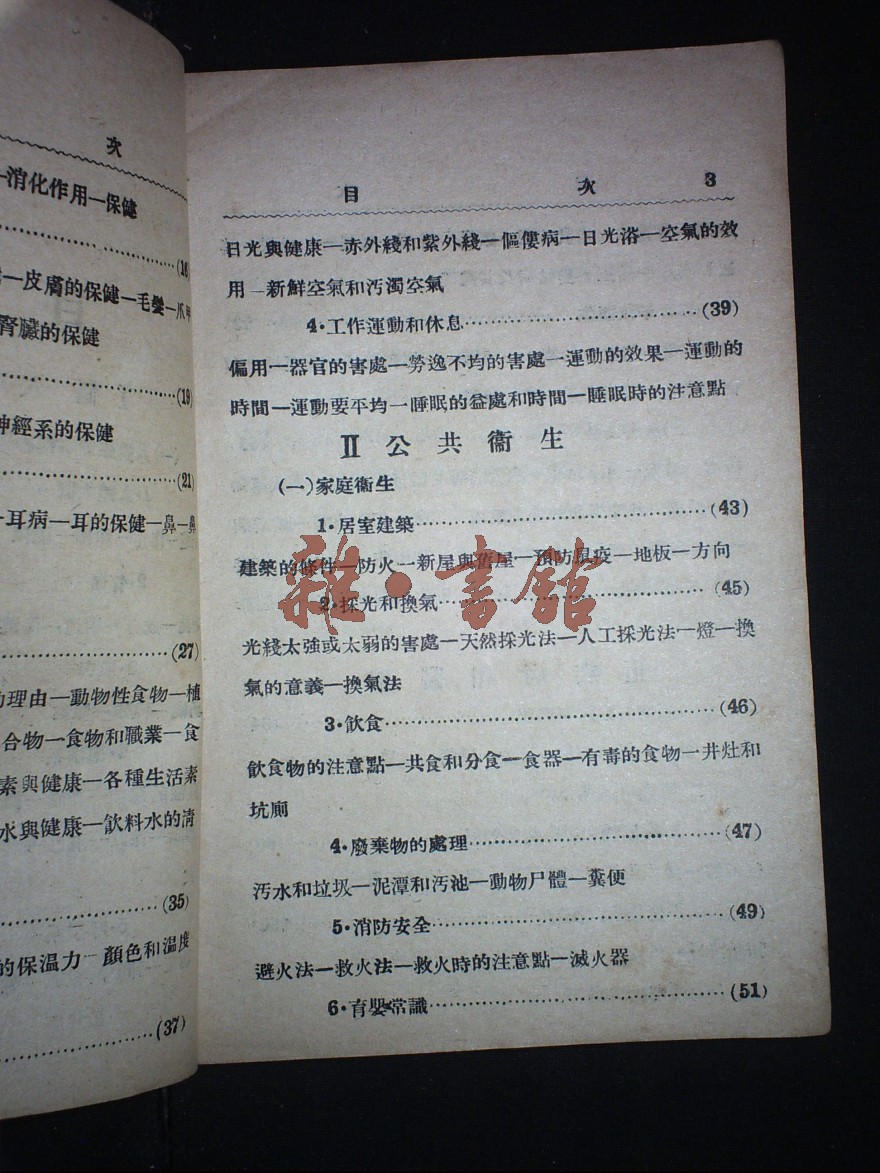 次
消化作用—保健
(18)
—皮膚的保健—毛髮—爪甲
腎臟的保健
(19)
神經系的保健
(21)
耳病—耳的保健—鼻—鼻
(27)
理由—動物性食物—植
合物—食物和職業—食
素與健康—各種生活素
水與健康—飲料水的清
(35)
的保温力—顏色和温度
(37)
目 次 3
日光與健康—赤外綫和紫外綫—傴僂病—日光浴—空氣的效
用—新鮮空氣和汚濁空氣
4·工作運動和休息……(39)
偏用—器官的害處—勞逸不均的害處—運動的效果—運動的
時間—運動要平均—睡眠的益處和時間—睡眠時的注意點
II 公共衞生
(一)家庭衞生
1·居室建築……(43)
建築的條件—防火—新屋與舊屋—預防鼠疫—地板—方向
2·採光和換氣……(45)
光綫太強或太弱的害處—天然採光法—人工採光法—燈—換
氣的意義—換氣法
3·飲食……(46)
飲食物的注意點—共食和分食—食器—有毒的食物—井灶和
坑厠
4·廢棄物的處理……(47)
汚水和垃圾—泥潭和汚池—動物尸體—糞便
5·消防安全……(49)
避火法—救火法—救火時的注意點—滅火器
6·育嬰常識……(51)
雜·書舘